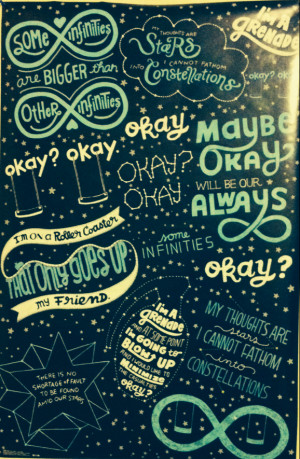 I'M A
GRENADE
SOME infinities
MY THOUGHTS ARE
StaRs
I CANNOT FATHOM
INTO
Constellations
are BIGGER than
okay? ok
OtHeR infinities
okay
MAYBE
OKAY
WILL BE OUR
ALWAYS
okay? okay.
OKAY?
OKAY
I'M ON A Roller Coaster
THAT ONLY goes UP
MY FRIEND.
some
INFINITIES
okay?
I'M A
GRENADE
AND AT SOME POINT
I'M GOING to
BLOW UP
AND I WOULD LIKE TO
MINIMIZE
THE CASUALTIES,
okay?
MY THOUGHTS ARE
stars
I CANNOT FATHOM
into
CONSTELLATIONS
THERE IS NO
SHORTAGE of FAULT
TO BE FOUND
AMID OUR STARS